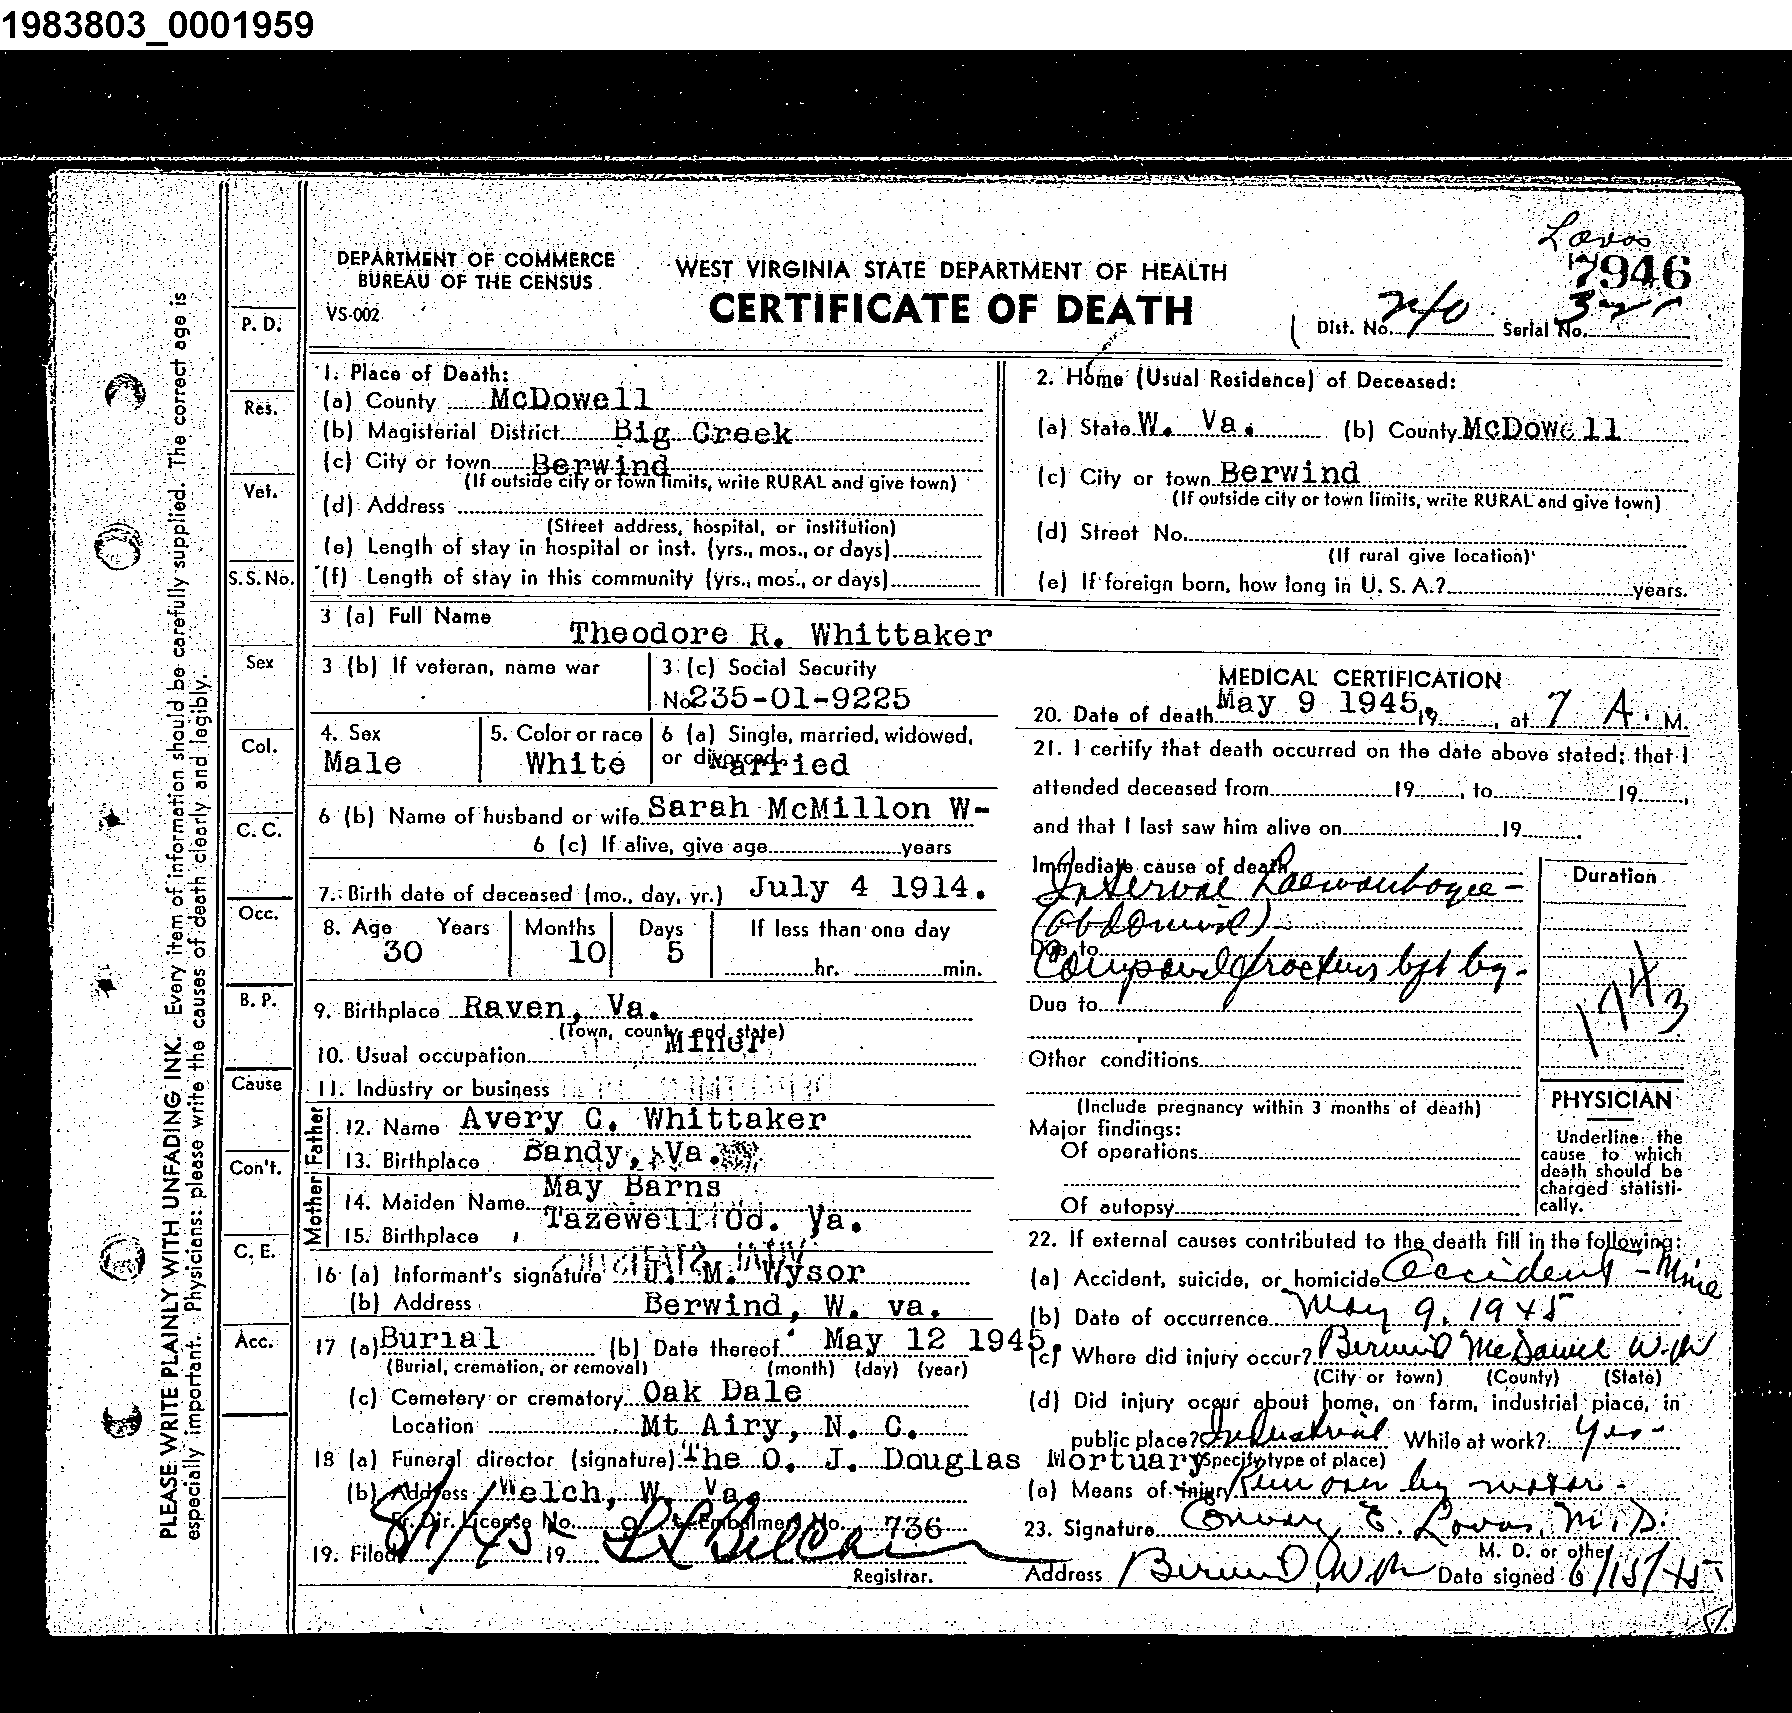 1983803_0001959
Lovas
7946
DEPARTMENT OF COMMERCE
BUREAU OF THE CENSUS
VS-002
WEST VIRGINIA STATE DEPARTMENT OF HEALTH
CERTIFICATE OF DEATH
Dist. No. 240 Serial No. 325
1. Place of Death:
(a) County McDowell
(b) Magisterial District Big Creek
(c) City or town Berwind
(If outside city or town limits, write RURAL and give town)
(d) Address
(Street address, hospital, or institution)
(e) Length of stay in hospital or inst. (yrs., mos., or days)
(f) Length of stay in this community (yrs., mos., or days)
2. Home (Usual Residence) of Deceased:
(a) State W. Va. (b) County McDowell
(c) City or town Berwind
(If outside city or town limits, write RURAL and give town)
(d) Street No.
(If rural give location)
(e) If foreign born, how long in U. S. A.? years.
3 (a) Full Name Theodore R. Whittaker
3 (b) If veteran, name war
3 (c) Social Security
No. 235-01-9225
4. Sex
Male
5. Color or race
White
6 (a) Single, married, widowed,
or divorced. Married
6 (b) Name of husband or wife Sarah McMillon W-
6 (c) If alive, give age years
7. Birth date of deceased (mo., day, yr.) July 4 1914.
8. Age Years Months Days If less than one day
30 10 5 hr. min.
9. Birthplace Raven, Va.
(Town, county, and state)
10. Usual occupation Miner
11. Industry or business
Father
12. Name Avery C. Whittaker
13. Birthplace Bandy, Va.
Mother
14. Maiden Name May Barns
15. Birthplace Tazewell Co. Va.
16 (a) Informant's signature J. M. Wysor
(b) Address Berwind, W. va.
17 (a) Burial (b) Date thereof May 12 1945.
(Burial, cremation, or removal) (month) (day) (year)
(c) Cemetery or crematory Oak Dale
Location Mt Airy, N. C.
18 (a) Funeral director (signature) The O. J. Douglas Mortuary
(b) Address Welch, W. Va.
Fr. Dir. License No. 9 Embalmers No. 736
19. Filed 19
Registrar.
MEDICAL CERTIFICATION
20. Date of death May 9 1945. 19 , at 7 A. M.
21. I certify that death occurred on the date above stated; that I
attended deceased from 19 , to 19 ,
and that I last saw him alive on 19 .
Immediate cause of death
Internal Haemorrhage -
(abdominal) -
Due to
Compound fracture left leg -
Due to
Other conditions
(Include pregnancy within 3 months of death)
Major findings:
Of operations
Of autopsy
Duration
PHYSICIAN
Underline the
cause to which
death should be
charged statisti-
cally.
22. If external causes contributed to the death fill in the following:
(a) Accident, suicide, or homicide Accident - Mine
(b) Date of occurrence May 9, 1945
(c) Where did injury occur? Berwind McDowell W. Va
(City or town) (County) (State)
(d) Did injury occur about home, on farm, industrial place, in
public place? Industrial While at work? Yes -
(Specify type of place)
(e) Means of injury Run over by motor -
23. Signature Conway E. Lovas, M.D.
M. D. or other
Address Berwind, W. Va Date signed 6/15/45
P. D.
Res.
Vet.
S. S. No.
Sex
Col.
C. C.
Occ.
B. P.
Cause
Con't.
C. E.
Acc.
PLEASE WRITE PLAINLY WITH UNFADING INK. Every item of information should be carefully supplied. The correct age is
especially important. Physicians: please write the causes of death clearly and legibly.